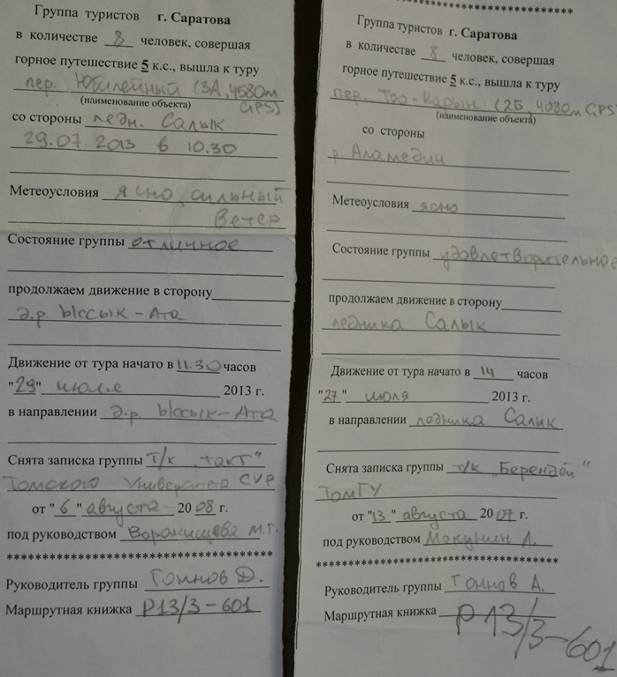 Группа туристов г. Саратова
в количестве 8 человек, совершая
горное путешествие 5 к.с., вышла к туру
пер. Юбилейный (3А, 4580м
(наименование объекта) GPS)
со стороны ледн. Салык
29.07.2013 в 10.30
Метеоусловия ясно, сильный
ветер
Состояние группы отличное
продолжаем движение в сторону
д.р. Ыссык-Ата
Движение от тура начато в 11.30 часов
"29" июля 2013 г.
в направлении д.р. Ыссык-Ата
Снята записка группы т/к "такт"
Томского Университета СУР
от "6" августа 2008 г.
под руководством Ворожищева М.Г.
****************************************
Руководитель группы Тоннов Д.
Маршрутная книжка Р13/3-601
****************************************
Группа туристов г. Саратова
в количестве 8 человек, совершая
горное путешествие 5 к.с., вышла к туру
пер. Тоо-Карын (2Б 4080м GPS
(наименование объекта)
со стороны
р. Аламедин
Метеоусловия ясно
Состояние группы удовлетворительное
продолжаем движение в сторону
ледника Салык
Движение от тура начато в 14 часов
"27" июля 2013 г.
в направлении ледника Салик
Снята записка группы т/к "Берендей"
ТомГУ
от "13" августа 2007 г.
под руководством Мокунин А.
****************************************
Руководитель группы Тоннов А.
Маршрутная книжка Р13/3-601